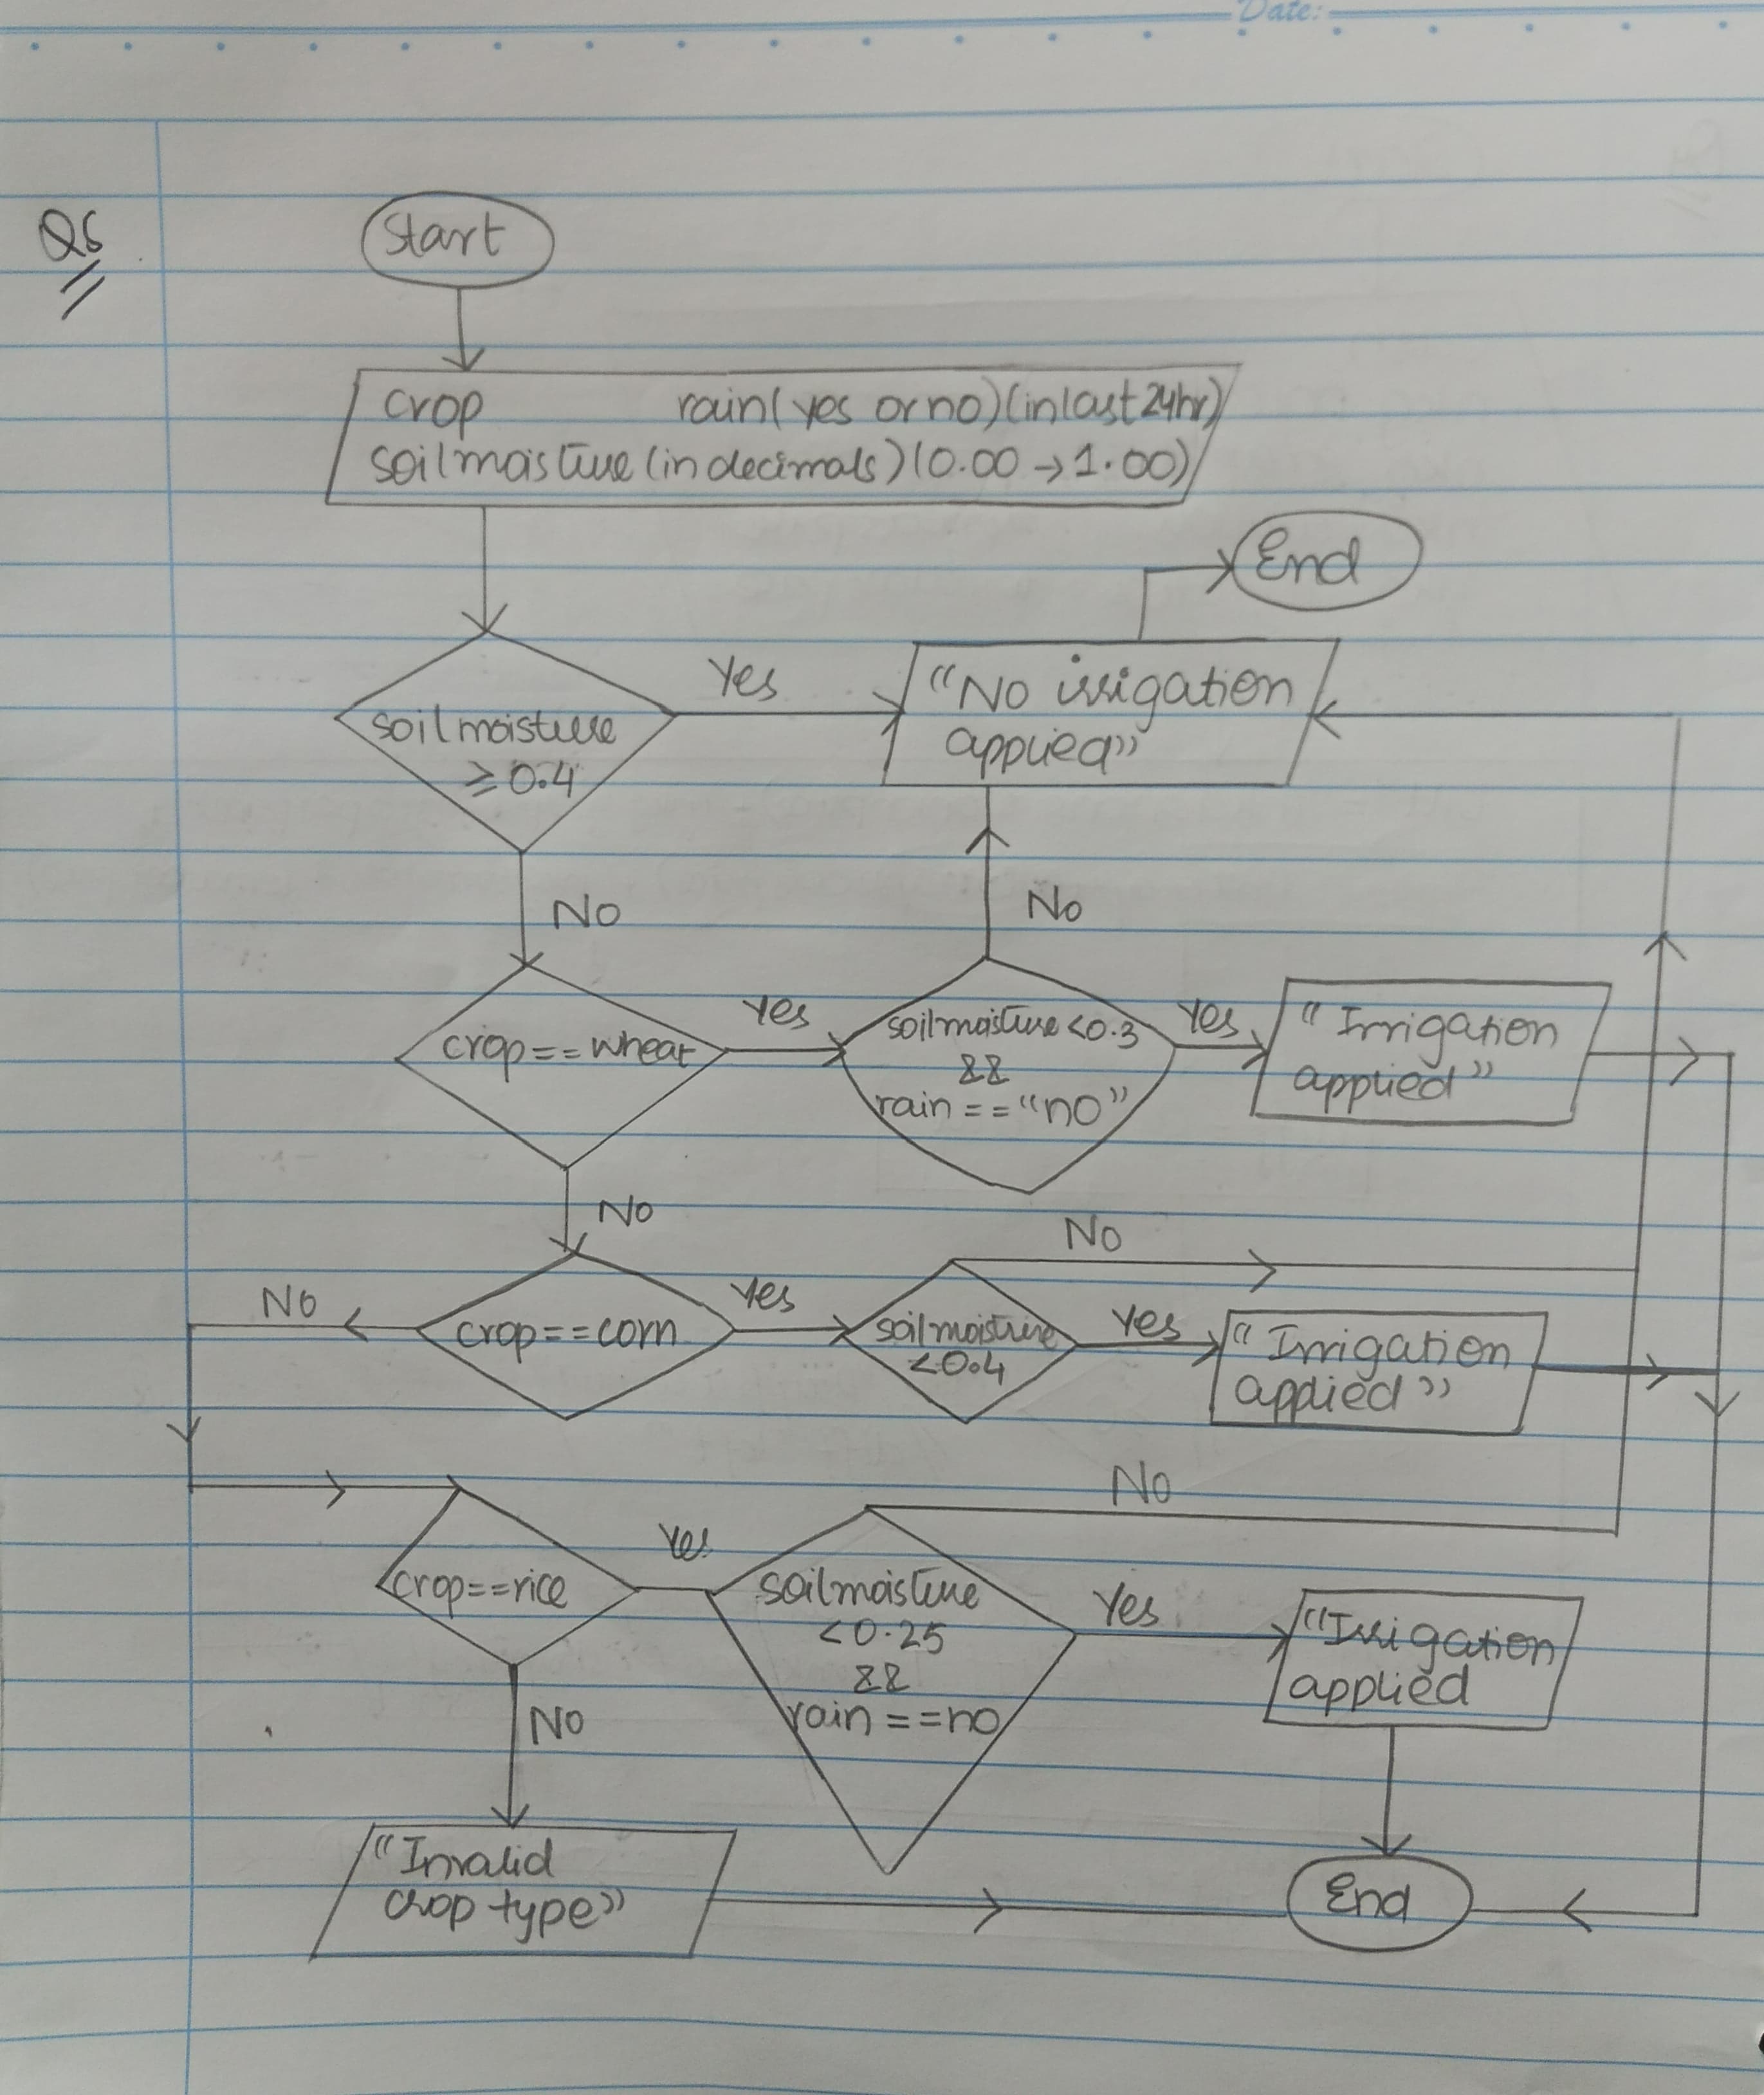 Date:
Q6
Start
crop rain(yes or no)(in last 24hr)
soilmoisture(in decimals)(0.00→1.00)
End
Yes
"No irrigation
applied"
soilmoisture
≥0.4
No
No
crop==wheat
Yes
soilmoisture<0.3
&&
rain=="no"
Yes
"Irrigation
applied"
No
No
No
crop==corn
Yes
soilmoisture
<0.4
Yes
"Irrigation
applied"
No
crop==rice
Yes
soilmoisture
<0.25
&&
rain==no
Yes
"Irrigation
applied
No
"Invalid
crop type"
End